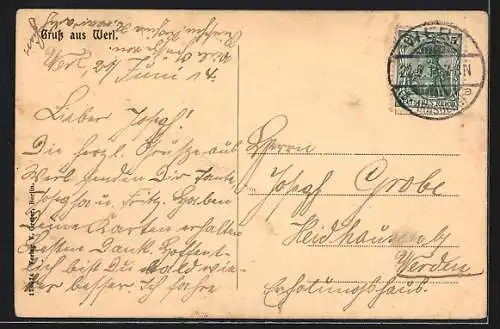 Gruß aus Werl.
Werl, 24 Juni 14.
Lieber Josef!
Die herzl. Grüße aus
Werl senden Dir Tante,
Josefa u. Fritz. Haben
Deine Karten erhalten
besten Dank. Hoffent
lich bist Du bald wie
der besser. Ich fahre
Herrn
Josef Grobe
Heidhausen b/
Werden
Erholungshaus.
WERL
Verlag
Berlin.